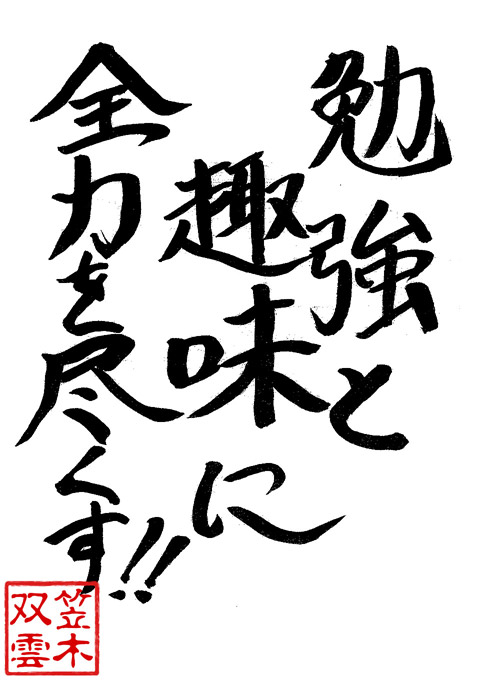 勉強と
趣味に
全力を尽くす!!
笠木
双雲